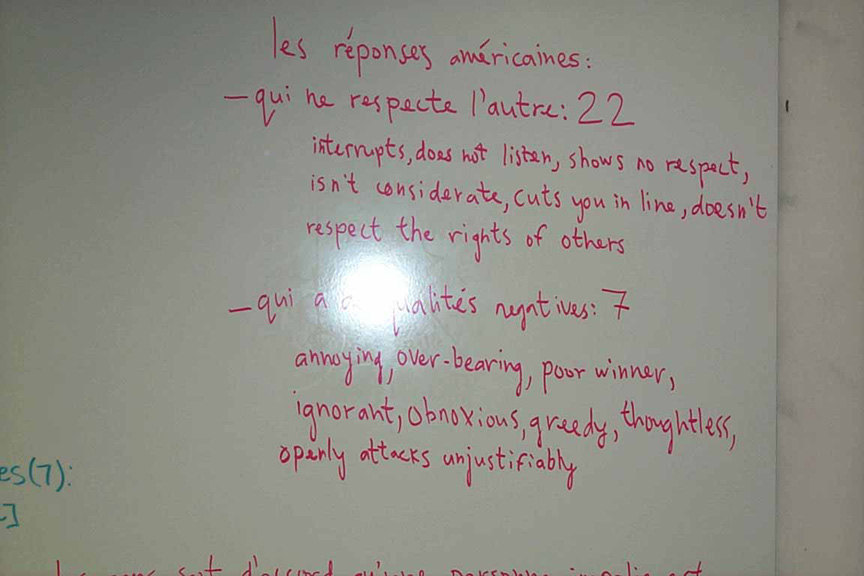 les réponses américaines:
– qui ne respecte l'autre: 22
interrupts, does not listen, shows no respect,
isn't considerate, cuts you in line, doesn't
respect the rights of others
– qui a qualités negatives: 7
annoying, over-bearing, poor winner,
ignorant, obnoxious, greedy, thoughtless,
openly attacks unjustifiably
es(7):
]
sont d'accord qu'une personne impolie est